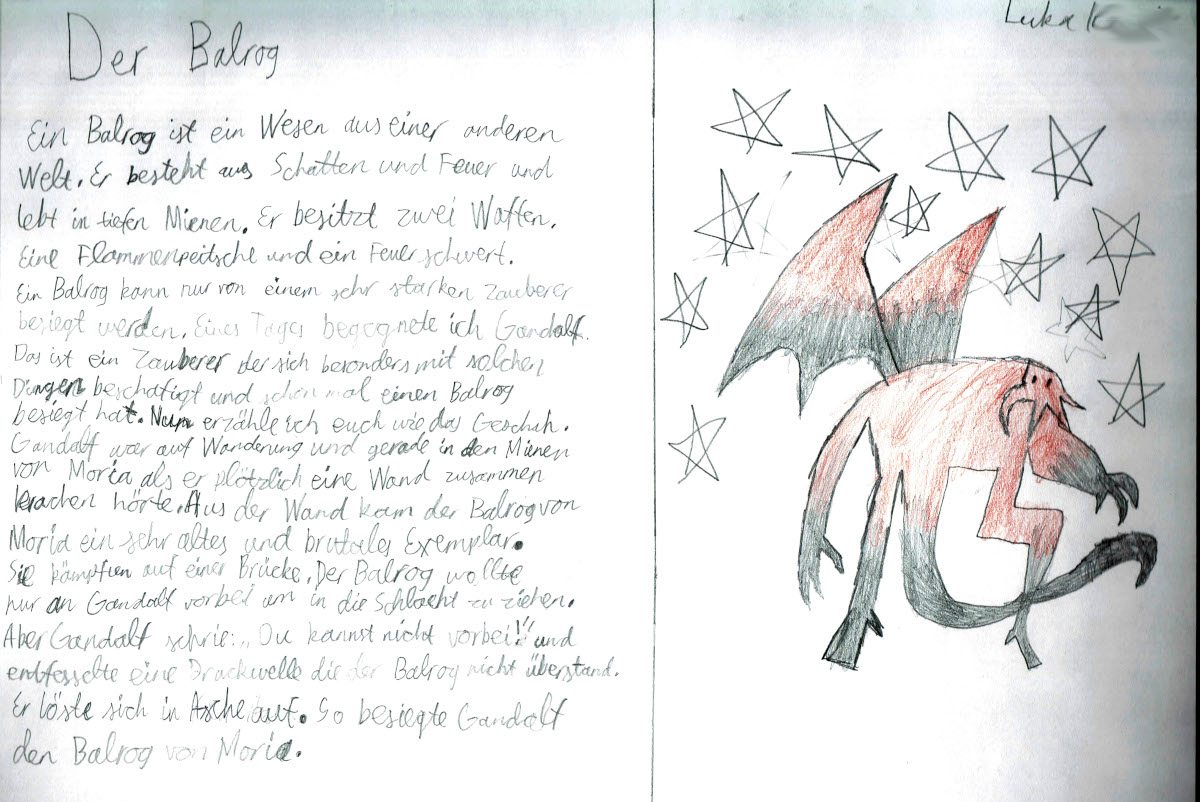 Der Balrog
Ein Balrog ist ein Wesen aus einer anderen
Welt. Er besteht aus Schatten und Feuer und
lebt in tiefen Mienen. Er besitzt zwei Waffen.
Eine Flammenpeitsche und ein Feuerschwert.
Ein Balrog kann nur von einem sehr starken Zauberer
besiegt werden. Eines Tages begegnete ich Gandalf.
Das ist ein Zauberer der sich besonders mit solchen
Dingen beschäftigt und schon mal einen Balrog
besiegt hat. Nun erzähle ich euch wie das Geschah.
Gandalf war auf Wanderung und gerade in den Mienen
von Moria als er plötzlich eine Wand zusammen
krachen hörte. Aus der Wand kam der Balrog von
Moria ein sehr altes und brutales Exemplar.
Sie kämpften auf einer Brücke. Der Balrog wollte
nur an Gandalf vorbei um in die Schlacht zu ziehen.
Aber Gandalf schrie: „Du kannst nicht vorbei!" und
entfesselte eine Druckwelle die der Balrog nicht überstand.
Er löste sich in Asche auf. So besiegte Gandalf
den Balrog von Moria.
Luka K